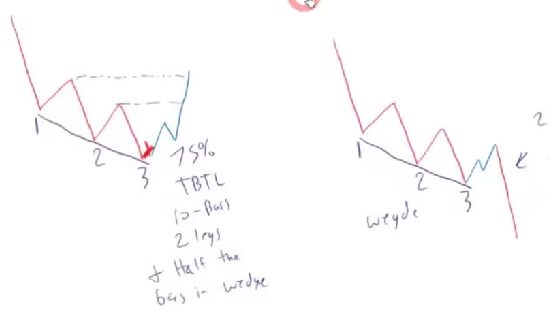 1
2
3
75%
TBTL
10-Bars
2 legs
+ Half the
bars in wedge
1
2
3
wegde
2